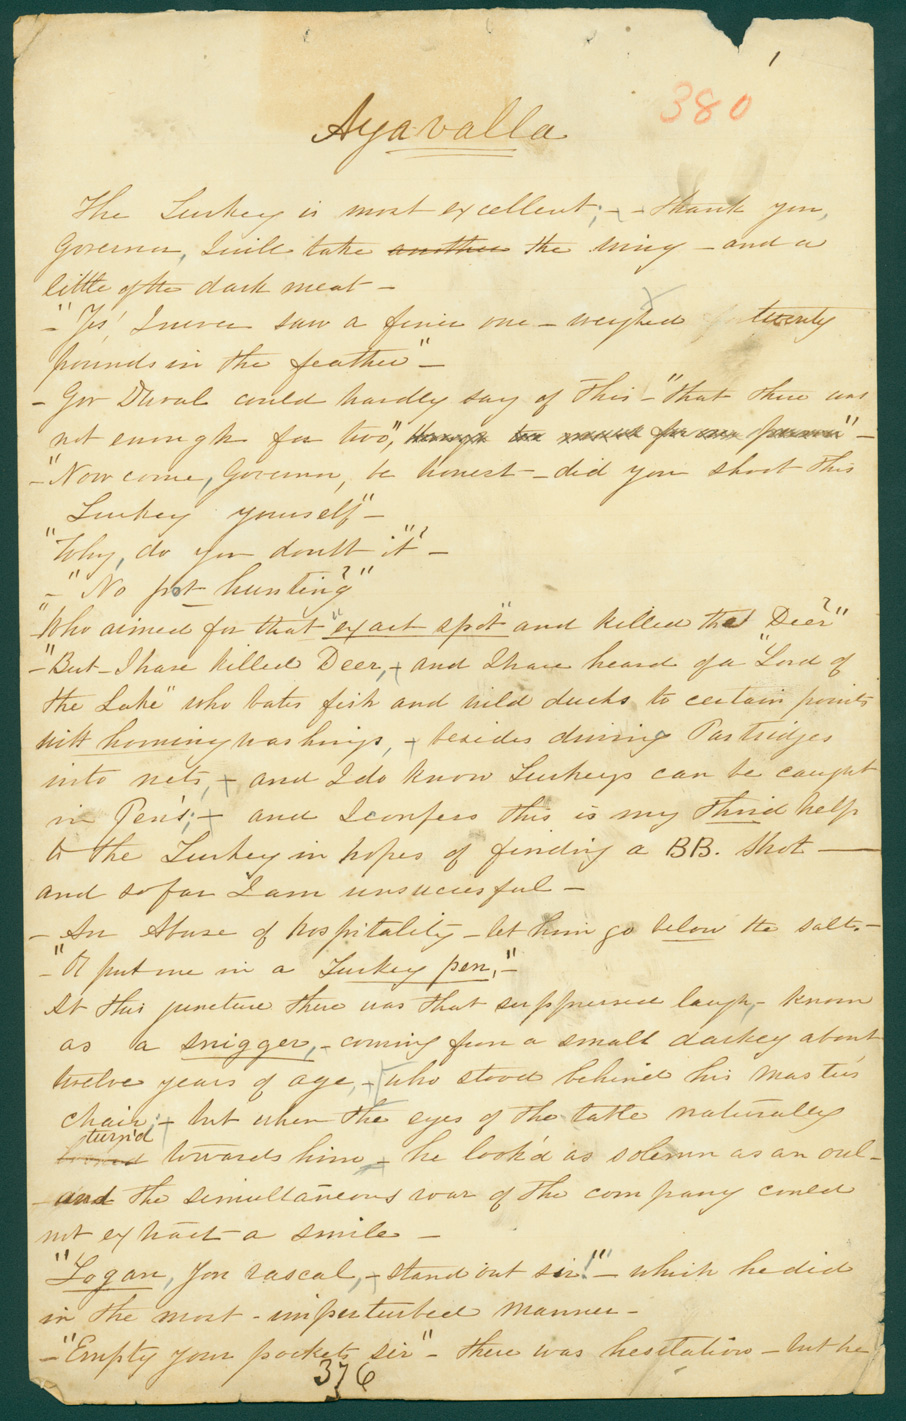 1
380
Ayavalla
The Turkey is most excellent; - - thank you,
Governor, I will take another the wing - and a
little of the dark meat -
- "Yes! I never saw a finer one - weighed twenty
pounds in the feather" -
- Gov Duval could hardly say of this - "that there was
not enough for two", though too much for one person" -
- "Now come, Governor, be honest - did you shoot this
Turkey yourself" -
"Why, do you doubt it"? -
- "No pot hunting?"
"Who aimed for that "exact spot" and killed the Deer?"
- "But - I have killed Deer, - and I have heard of a "Lord of
the Lake" who baits fish and wild ducks to certain points
with hominy washings, - besides driving Partridges
into nets, - and I do know Turkeys can be caught
in Pen's; - and I confess this is my third help
to the Turkey in hopes of finding a BB. shot —
and so far I am unsucessful -
- An Abuse of hospitality - let him go below the salt. -
- "Or put me in a Turkey pen," -
At this juncture there was that suppressed laugh, - known
as a snigger, - coming from a small darkey about
twelve years of age, - who stood behind his master's
chair; - but when the eyes of the table naturally
turn'd
turned towards him - he look'd as solemn as an owl -
- and the simultaneous roar of the company could
not extract a smile -
"Logan, you rascal, - stand out sir!" - which he did
in the most - imperturbed manner -
- "Empty your pockets sir" - there was hesitation - but he
376